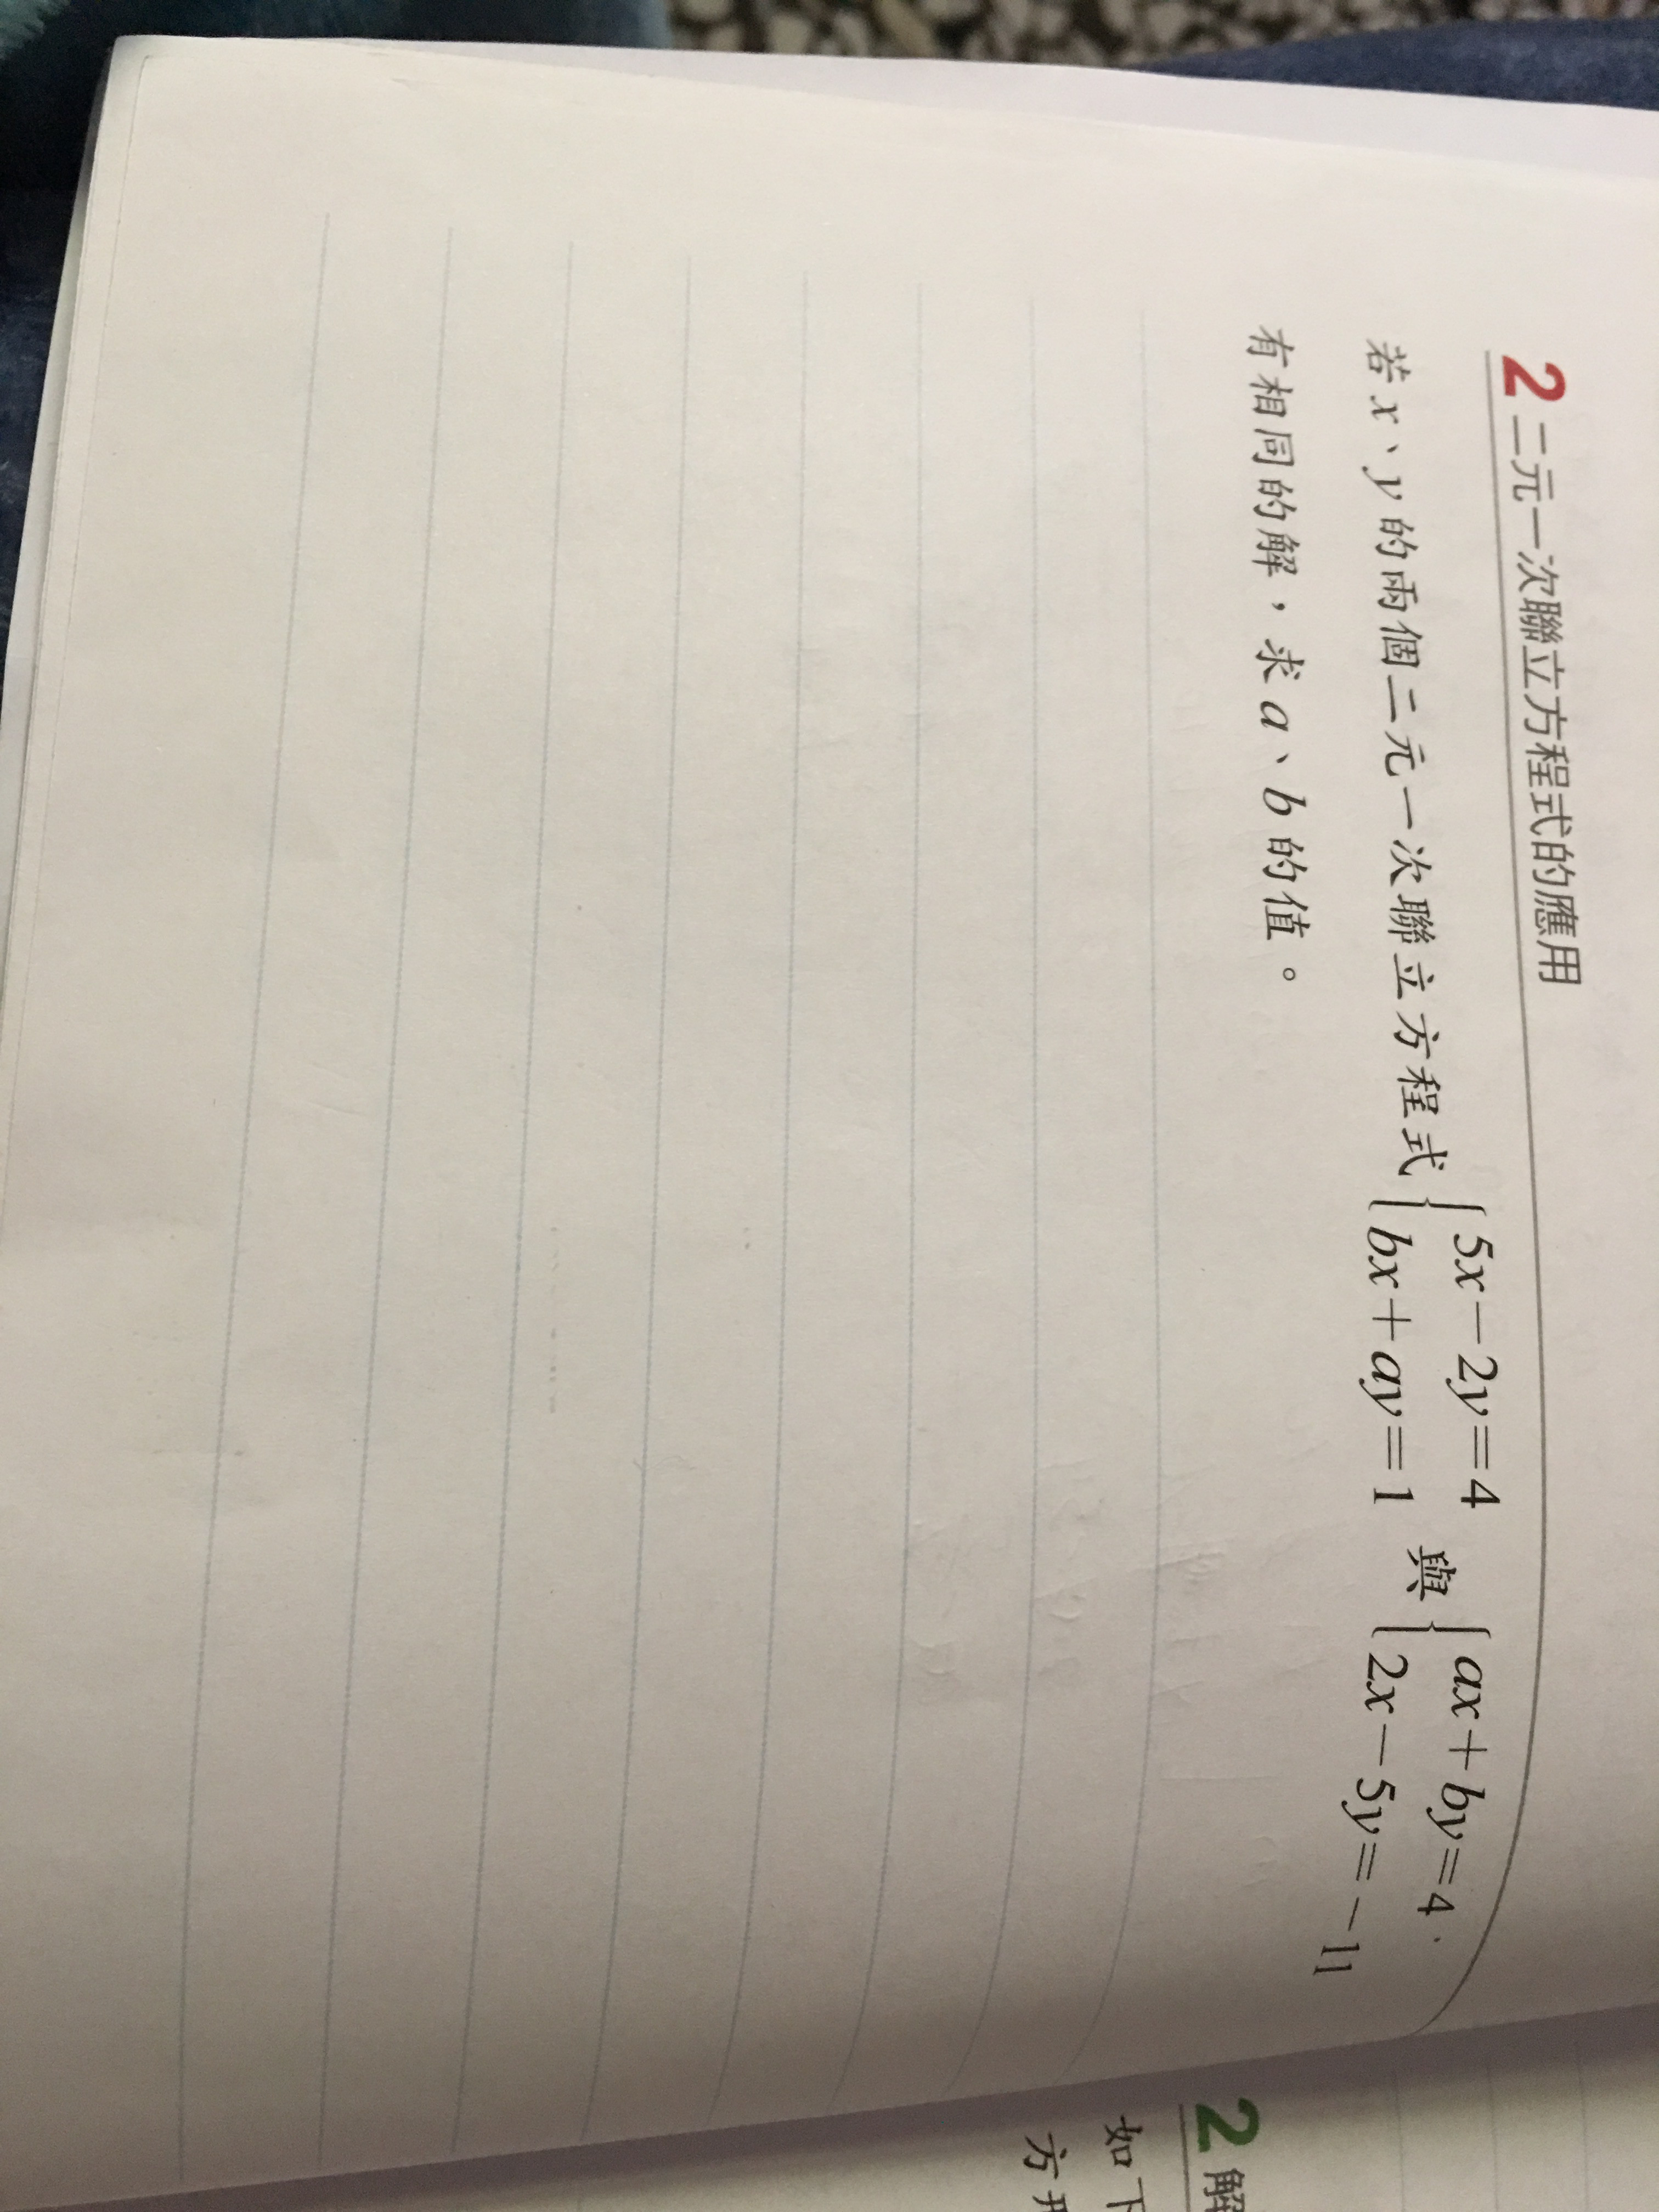 2 二元一次聯立方程式的應用
若x、y的兩個二元一次聯立方程式{5x-2y=4 與 {ax+by=4
bx+ay=1 2x-5y=-11
有相同的解,求a、b的值。
2 解
如下
方形